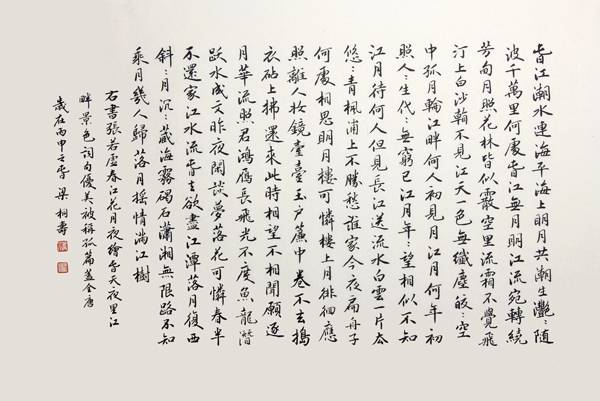 春江潮水連海平海上明月共潮生灩〻隨
波千萬里何處春江無月明江流宛轉繞
芳甸月照花林皆似霰空里流霜不覺飛
汀上白沙看不見江天一色無纖塵皎〻空
中孤月輪江畔何人初見月江月何年初
照人〻生代〻無窮已江月年〻望相似不知
江月待何人但見長江送流水白雲一片去
悠〻青楓浦上不勝愁誰家今夜扁舟子
何處相思明月樓可憐樓上月徘徊應
照離人妝鏡臺臺玉戶簾中卷不去搗
衣砧上拂還來此時相望不相聞願逐
月華流照君鴻雁長飛光不度魚龍潛
躍水成文昨夜閑談夢落花可憐春半
不還家江水流春去欲盡江潭落月復西
斜〻月沉〻藏海霧碣石瀟湘無限路不知
乘月幾人歸落月搖情滿江樹
右書張若虛春江花月夜繪天夜里江
畔景色詞句優美被稱孤篇蓋全唐
歲在丙申之春梁桐壽